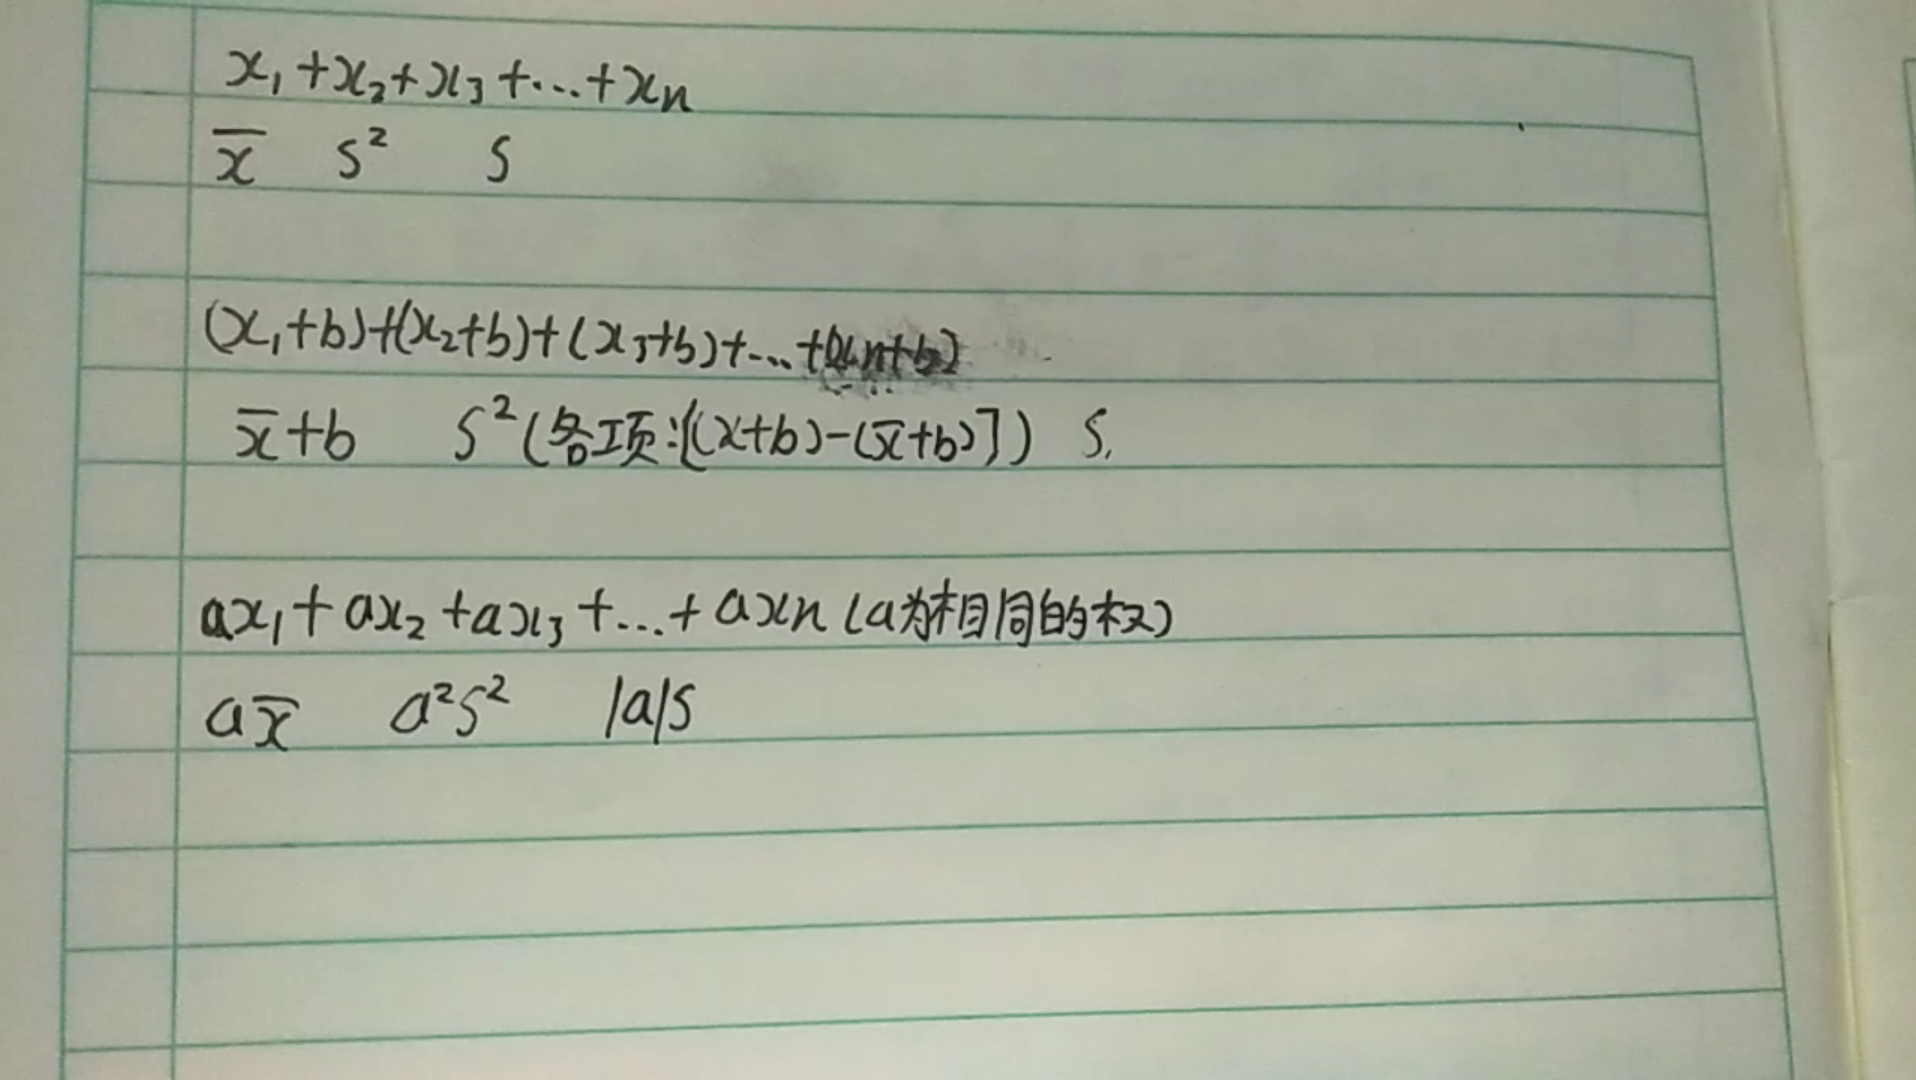 x₁+x₂+x₃+...+xn
x̄ S² S
(x₁+b)+(x₂+b)+(x₃+b)+...+(xn+b)
x̄+b S²(各项:[(x+b)-(x̄+b)]) S.
ax₁+ax₂+ax₃+...+axn(a为相同的权)
ax̄ a²S² |a|S